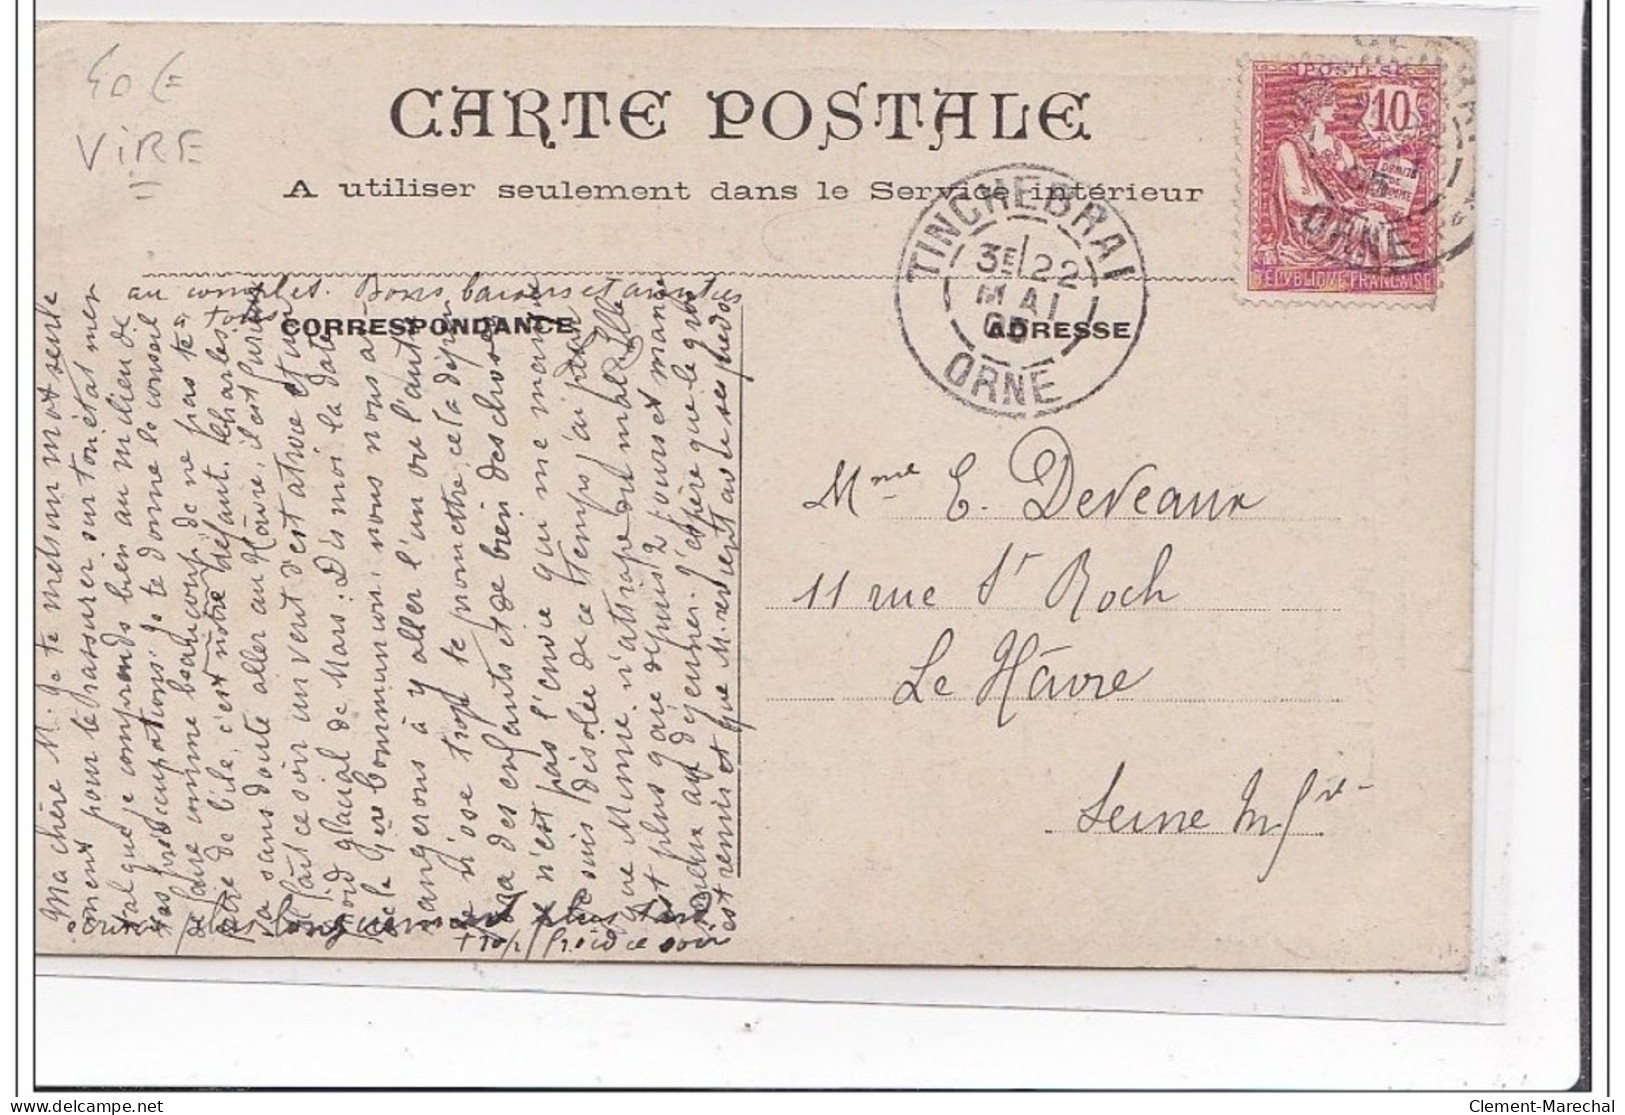 40 €
VIRE
CARTE POSTALE
A utiliser seulement dans le Service intérieur
CORRESPONDANCE
ADRESSE
TINCHEBRAI
3E 22
MAI
05
ORNE
POSTES
10
RÉPUBLIQUE FRANÇAISE
ORNE
Mme E. Deveaux
11 rue St Roch
Le Hâvre
Seine Infre
Ma chère M. Je te mets un mot seule
ment pour te rassurer sur ton état men
tal que je comprends bien au milieu de
tes préoccupations. Je te donne le conseil
de faire comme beaucoup, de ne pas te
de l'île, c'est notre défaut. Charles
va sans doute aller au Hâvre, il est furieux
ce soir un vent d'est atroce et un
froid glacial de Mars. Dis moi la date
de la 1ère communion, nous nous
arrangerons à y aller l'un ou l'autre
je n'ose trop te promettre, cela dépen
dra des enfants et de bien des choses
ce n'est pas l'envie qui me manque
Je suis désolée de ce temps, j'ai peur
que Mème n'attrape du mal. Elle
est plus gaie depuis 2 jours et mange
mieux au déjeuner. J'espère que le gros
est remis et que M. revient avec ses
plus longuement plus tard
trop froid ce soir
au complet. Bons baisers et amitiés
à tous
Clement-Marechal